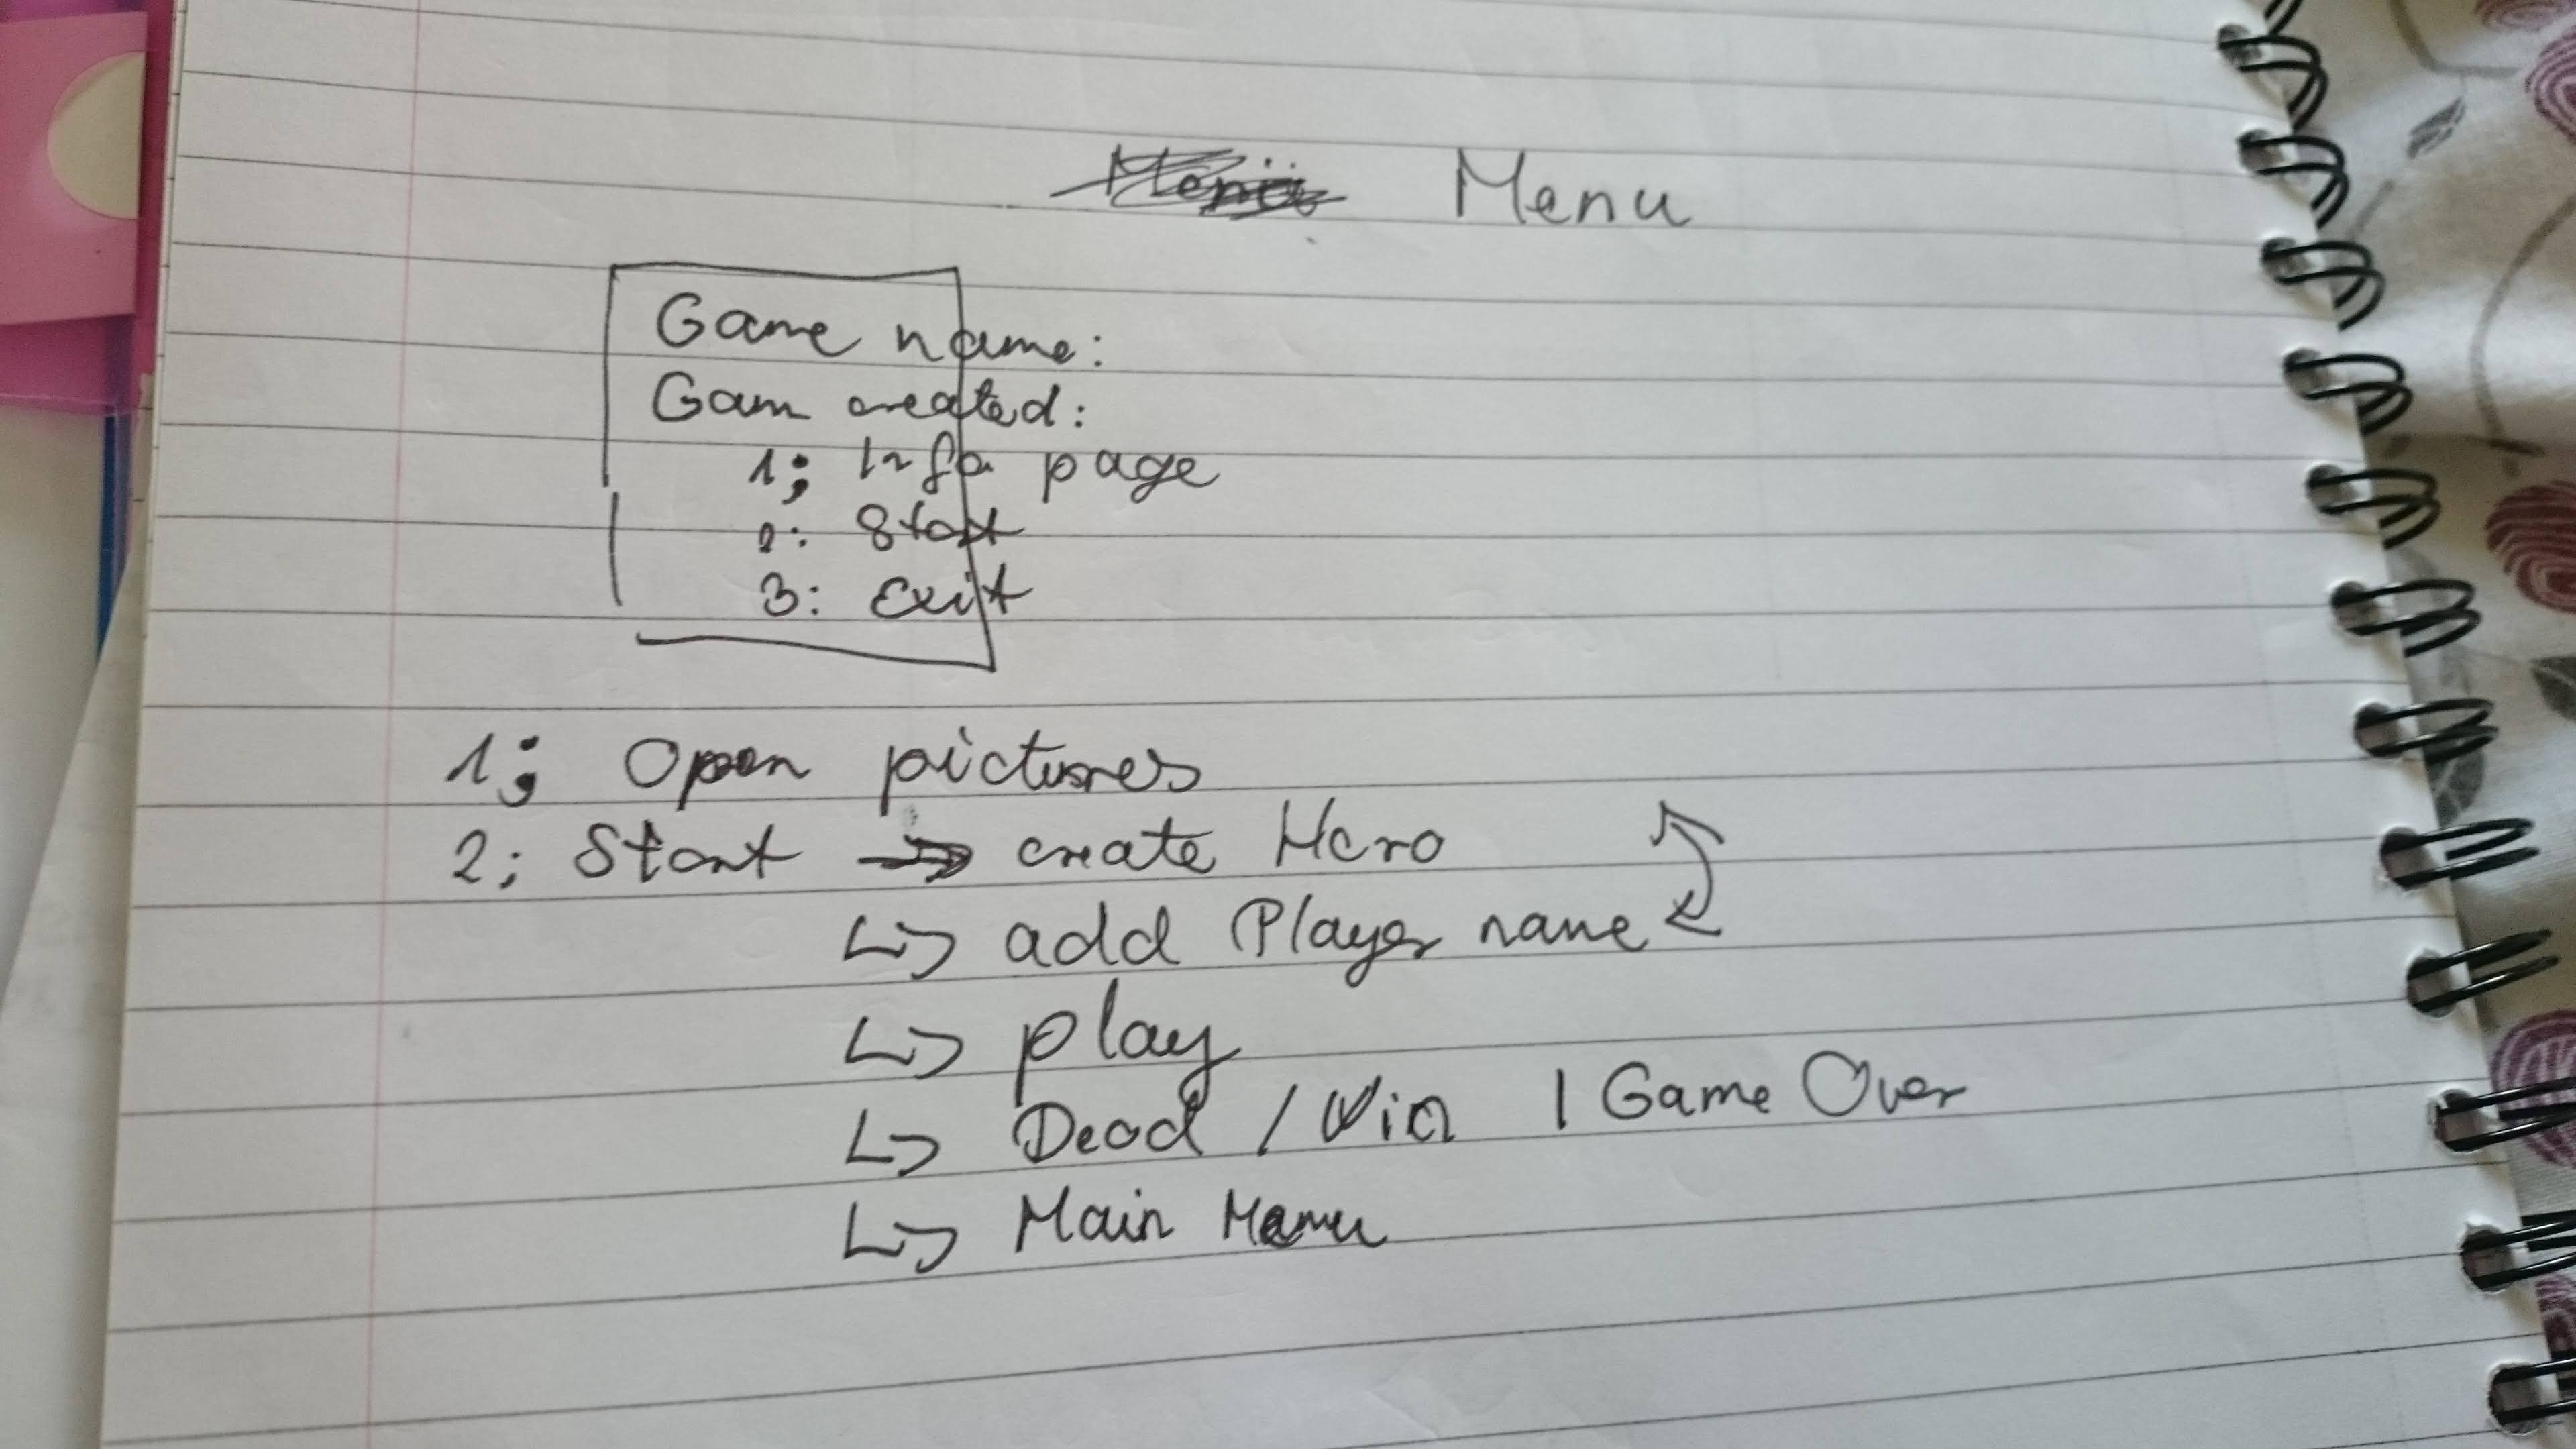 Menü Menu
Game name:
Gam created:
1; Info page
2: Start
3: Exit
1; Open pictures
2; Start → create Hero
↳ add Player name
↳ play
↳ Dead / Win | Game Over
↳ Main Menu